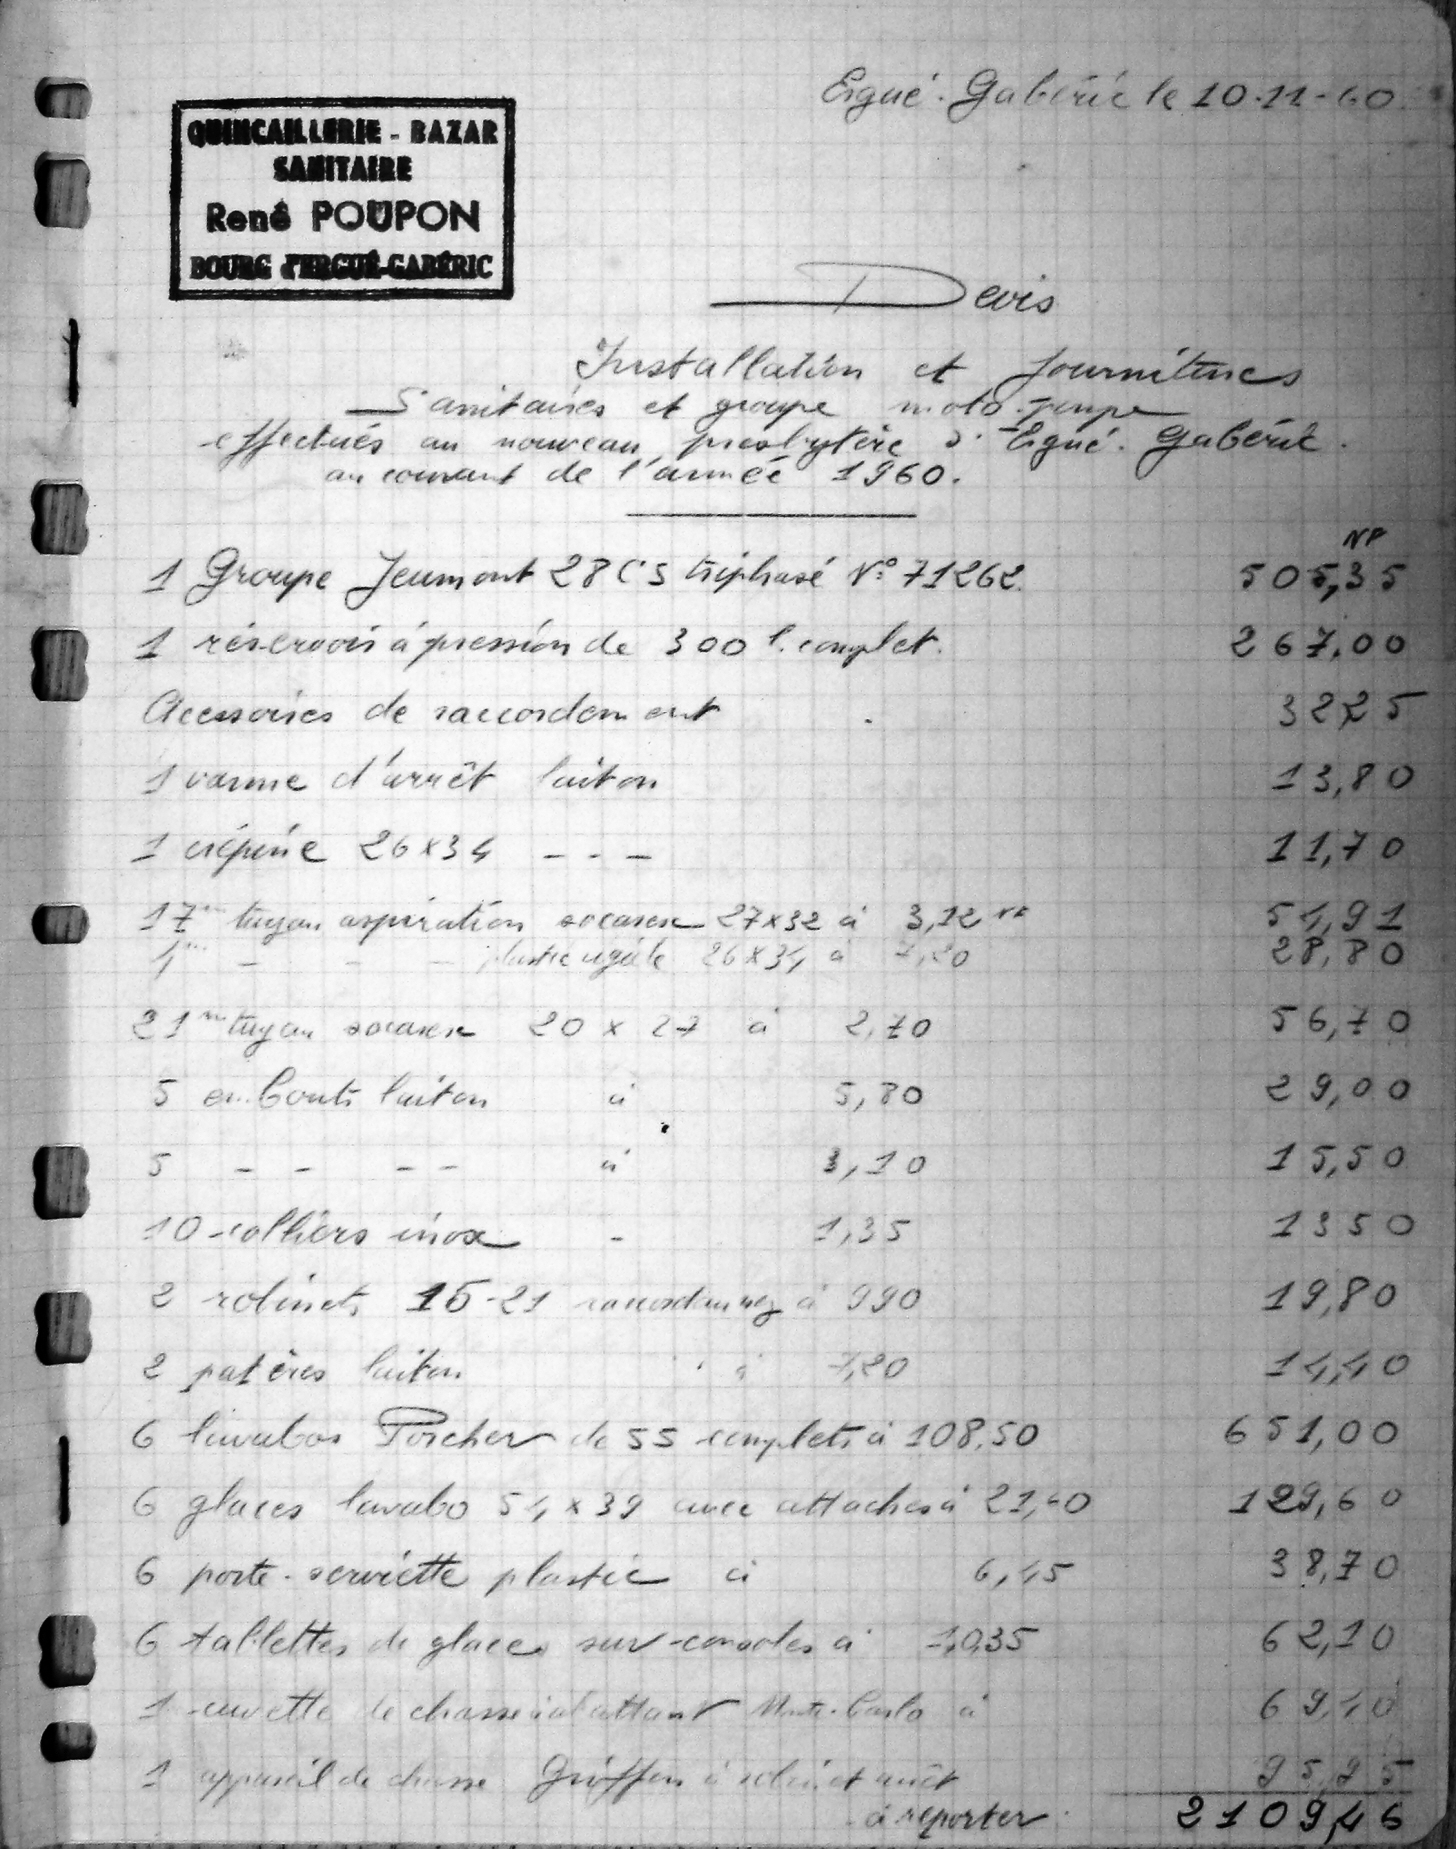 Ergué-Gabéric le 10-11-60
QUINCAILLERIE - BAZAR
SANITAIRE
René POUPON
BOURG d'ERGUÉ-GABÉRIC
Devis
Installation et fournitures
Sanitaires et groupe moto-pompe
effectués au nouveau presbytère d'Ergué-Gabéric.
au courant de l'année 1960.
NF
1 Groupe Jeumont 28 CS triphasé N° 71262 505,35
1 réservoir à pression de 300 l. complet. 267,00
Accessoires de raccordement 32,25
1 vanne d'arrêt laiton 13,80
1 crépine 26x34 - - - 11,70
17m tuyau aspiration socarex 27x32 à 3,12 NF 54,91
4m - - - plastic rigide 26x34 à 7,20 28,80
21m tuyau socarex 20 x 27 à 2,70 56,70
5 embouts laiton à 5,80 29,00
5 - - - - à 3,10 15,50
10 colliers inox - 1,35 1350
2 robinets 15-21 à 990 19,80
2 patères laiton à 7,20 14,40
6 lavabos Porcher de 55 complets à 108,50 651,00
6 glaces lavabo 54 x 39 avec attaches à 21,60 129,60
6 porte-serviette plastic à 6,45 38,70
6 tablettes de glace sur consoles à 10,35 62,10
1 cuvette de chasse à abattant Monte-Carlo à 69,40
1 appareil de chasse Griffon à robinet arrêt 95,95
à reporter 2109,46